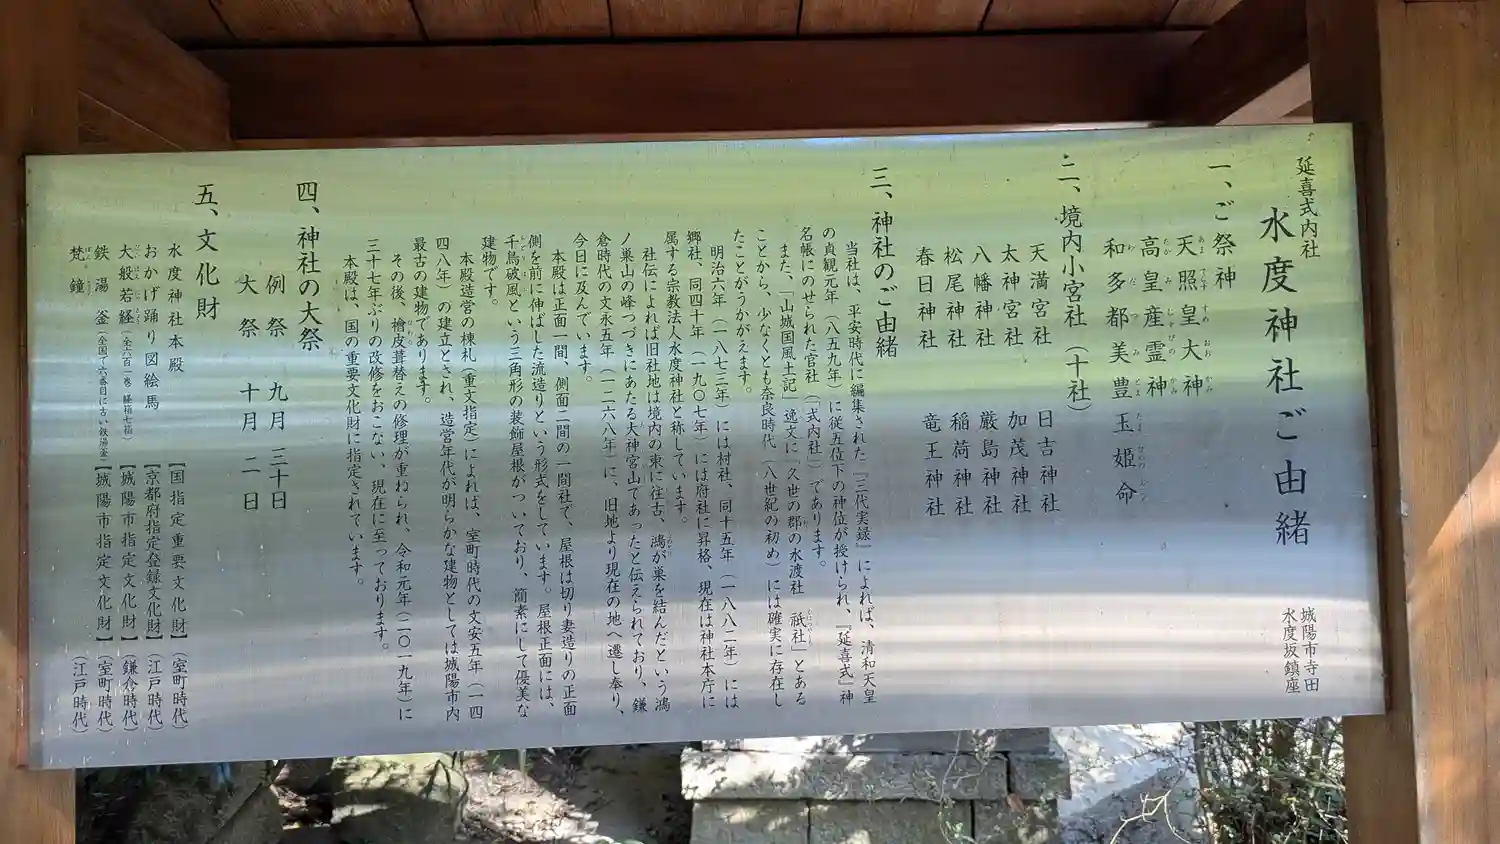 延喜式内社
水度神社ご由緒
城陽市寺田
水度坂鎮座
一、ご祭神
天照皇大神
高皇産霊神
和多都美豊玉姫命
二、境内小宮社（十社）
天満宮社 日吉神社
太神宮社 加茂神社
八幡神社 厳島神社
松尾神社 稲荷神社
春日神社 竜王神社
三、神社のご由緒
当社は、平安時代に編集された『三代実録』によれば、清和天皇
の貞観元年（八五九年）に従五位下の神位が授けられ、『延喜式』神
名帳にのせられた官社（「式内社」）であります。
また、「山城国風土記」逸文に「久世の郡の水渡社 祇社」とある
ことから、少なくとも奈良時代（八世紀の初め）には確実に存在し
たことがうかがえます。
明治六年（一八七三年）には村社、同十五年（一八八二年）には
郷社、同四十年（一九〇七年）には府社に昇格、現在は神社本庁に
属する宗教法人水度神社と称しています。
社伝によれば旧社地は境内の東に往古、鴻が巣を結んだという鴻
ノ巣山の峰つづきにあたる大神宮山であったと伝えられており、鎌
倉時代の文永五年（一二六八年）に、旧地より現在の地へ遷し奉り、
今日に及んでいます。
本殿は正面一間、側面二間の一間社で、屋根は切り妻造りの正面
側を前に伸ばした流造りという形式をしています。屋根正面には、
千鳥破風という三角形の装飾屋根がついており、簡素にして優美な
建物です。
本殿造営の棟札（重文指定）によれば、室町時代の文安五年（一四
四八年）の建立とされ、造営年代が明らかな建物としては城陽市内
最古の建物であります。
その後、檜皮葺替えの修理が重ねられ、令和元年（二〇一九年）に
三十七年ぶりの改修をおこない、現在に至っております。
本殿は、国の重要文化財に指定されています。
四、神社の大祭
例祭 九月 三十日
大祭 十月 二日
五、文化財
水度神社本殿 【国指定重要文化財】（室町時代）
おかげ踊り図絵馬 【京都府指定登録文化財】（江戸時代）
大般若経（全六百一巻 経箱七箱） 【城陽市指定文化財】（鎌倉時代）
鉄湯釜（全国で六番目に古い鉄湯釜） 【城陽市指定文化財】（室町時代）
梵鐘 （江戸時代）